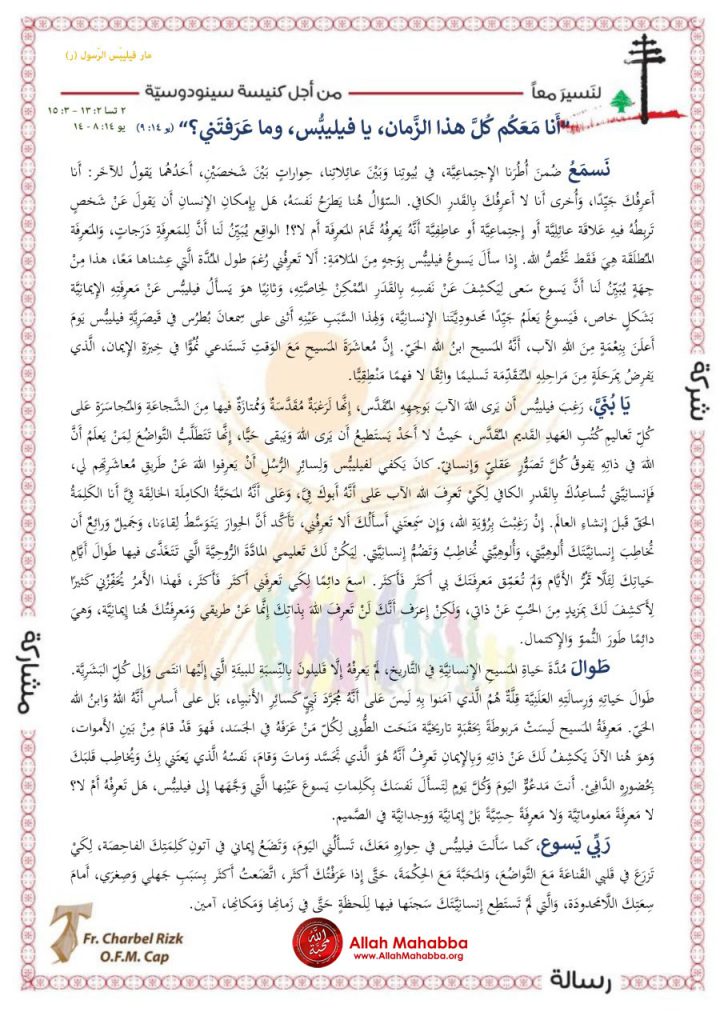 مار فيليبّس الرّسول (ر)
لنَسيرَ معاً
من أجل كنيسة سينودوسيّة
٢ تسا ٢: ١٣ - ٣: ١٥
يو ١٤: ٨ - ١٤
"أَنا مَعَكُم كُلَّ هذا الزَّمان، يا فيليبُّس، وما عَرَفتَني؟" (يو ١٤: ٩)
نَسمَعُ ضُمنَ أُطُرَنا الإجتِماعِيَّة، في بُيوتِنا وَبَيْنَ عائِلاتِنا، حِواراتٍ بَيْنَ شَخصَيْنِ، أَحَدُهُما يَقولُ للآخَر: أنا
أَعرِفُكَ جَيِّدًا، وَأُخرى أنا لا أَعرِفُكَ بِالقَدرِ الكافي. السّؤالُ هُنا يَطرَحُ نَفسَهُ، هَل بِإمكانِ الإنسانِ أن يَقولَ عَنْ شَخصٍ
تَربِطُهُ فيهِ عَلاقَة عائِليَّة أو إجتِماعِية أو عاطِفِيَّة أنَّهُ يَعرِفُهُ تَمامَ المَعرِفَة أم لا؟! الواقِع يُبَيِّنُ لَنا أنَّ لِلمَعرِفَةِ دَرَجاتٍ، وَالمَعْرِفَة
المُطلَقَة هِيَ فَقَط تَخُصُّ الله. إذا سأَلَ يَسوعُ فيليبُّس بِوَجهٍ مِنَ المَلامَةِ: أَلا تَعرِفُني رُغمَ طول المُدَّة الَّتي عِشناها مَعًا، هذا مِنْ
جِهةٍ يُبَيِّنُ لَنا أنَّ يَسوعَ سَعى لِيَكشِفَ عَنْ نَفسِهِ بِالقَدَرِ المُمْكِنْ لِخاصَّتِهِ، وَثانِيًا هوَ يَسأَلُ فيليبُّس عَنْ مَعرِفَتِهِ الإيمانِيَّة
بَشَكلٍ خاص، فَيَسوعُ يَعلَمُ جَيِّدًا مَحدودِيَّتَنا الإنسانِيَّة، وَلِهذا السَّبَبِ عَيْنِهِ أَثنى على سِمعانَ بُطرُس في قَيصَرِيَّةِ فيليبُّس يَومَ
أَعلَنَ بِنِعْمَةٍ مِنَ اللهِ الآب، أنَّهُ المَسيح ابنُ اللهِ الحَيّ. إنَّ مُعاشَرَةَ المَسيحِ مَعَ الوَقتِ تَستَدعي نُمُوًّا في خِبرَةِ الإيمان، الَّذي
يَفرِضُ بِمَرحَلَةٍ مِنَ مَراحِلِهِ المُتَقَدِّمَة تَسليمًا واثِقًا لا فهمًا مَنْطِقِيًّا.
يَا بُنَيَّ، رَغِبَ فيليبُّس أن يَرى اللهَ الآبَ بَوَجهِهِ المُقَدَّس، إنَّها لَرَغبَةٌ مُقَدَّسَةٌ وَمُمتازَةٌ فيها مِنَ الشَّجاعَةِ وَالمُجاسَرَةِ عَلى
كُلّ تَعاليم كُتُبِ العَهدِ القَديم المُقَدَّس، حَيثُ لا أَحَدْ يَستَطيعُ أن يَرى اللهَ وَيَبقى حَيًّا، إنَّها تَتَطَلَّبُ التَّواضُعَ لِمَنْ يَعلَمُ أنَّ
اللهَ في ذاتِهِ يَفوقُ كُلَّ تَصَوُّرٍ عَقليٍّ وَإنسانيّ. كانَ يَكفي لفيليبُّس وَلِسائِر الرُّسُل أنْ يَعرِفوا اللهَ عَنْ طَريقِ مُعاشَرَتِهِم لي،
فَإنسانِيَّتي تُساعِدُكَ بِالقَدرِ الكافي لِكَيْ تَعرِفَ الله الآب عَلى أنَّهُ أَبوكَ فِيَّ، وَعَلى أنَّهُ المَحَبَّةُ الكامِلَة الخالِقة فِيَّ أنا الكَلِمَةُ
الحَقّ قَبلَ إنشاءِ العالَم. إنْ رَغِبْتَ بِرُؤيَةِ الله، وَإن سَمِعتَني أَسألُكَ أَلا تَعرِفُني، تَأَكَّد أنَّ الحِوارَ يَتَوَسَّطُ لِقاءَنا، وَجَميلٌ وَرائِعٌ أن
تُخاطِبَ إنسانِيَّتُكَ أُلوهِيَّتي، وَأُلوهِيَّتي تُخاطِبُ وَتَضُمُّ إنسانِيَّتي. لِيَكُنْ لَكَ تَعليمي المادَّةَ الرُّوحِيَّةَ الَّتي تَتَغَذَّى فيها طَوالَ أَيَّامِ
حَياتِكَ لِئَلَّا تَمُرُّ الأَيَّام وَلَمْ تُعَمِّق مَعرِفَتَكَ بي أَكثَر فَأَكثَر. اسعَ دائِمًا لِكَي تَعرِفَني أَكثَر فَأَكثَر، فَهذا الأَمرُ يُحَفِّزُني كَثيرًا
لِأَكشِفَ لَكَ بِمَزيدٍ مِنَ الحُبّ عَنْ ذاتي، وَلَكِنْ إعرَف أنَّكَ لَنْ تَعرِفَ اللهَ بِذاتِكَ إنَّما عَنْ طَريقي وَمَعرِفَتُكَ هُنا إيمانِيَّة، وَهيَ
دائِمًا طَورَ النُّموّ وَالإكتِمال.
طَوالَ مُدَّة حَياةِ المَسيح الإنسانِيَّة في التَّاريخ، لَمْ يَعرِفْهُ إلَّا قَليلونَ بِالنِّسبَةِ لِلبيئَةِ الَّتي إلَيْها انتَمى وَإلى كُلّ البَشَريَّة.
طَوالَ حَياتِهِ وَرِسالَتِهِ العَلَنِيَّة قِلَّةٌ هُمُ الَّذي آمَنوا بِهِ لَيسَ عَلى أنَّهُ مُجَرَّدَ نَبيٍّ كَسائِر الأنبِياء، بَل على أساسِ أنَّهُ اللهُ وَابنُ الله
الحَيّ. مَعرِفَةُ المَسيح لَيسَتْ مَربوطَةً بِحَقبَةٍ تاريخيَّة مَنَحَت الطُّوبى لِكُلّ مَنْ عَرَفَهُ في الجَسَد، فَهوَ قَد قامَ مِنْ بَينِ الأموات،
وَهوَ هُنا الآنَ يَكشِفُ لَكَ عَنْ ذاتِهِ وَبِالإيمانِ تَعرِفُ أنَّهُ هُوَ الَّذي تَجَسَّد وَماتَ وَقامَ، نَفسُهُ الَّذي يَعتَني بِكَ وَيُخاطِب قَلبَكَ
بِحُضورِهِ الدَّافِئ. أنتَ مَدعُوٌّ اليَومَ وَكُلَّ يَومٍ لِتَسأَلَ نَفسَكَ بِكَلِماتِ يَسوعَ عَيْنِها الَّتي وَجَّهَها إلى فيليبُّس، هَل تَعرِفُهُ أمْ لا؟
لا مَعرِفَةً مَعلوماتِيَّة وَلا مَعرِفَةً حِسِّيَّةً بَلْ إيمانِيَّة وَوِجدانِيَّة في الصَّميم.
رَبِّي يَسوع، كَما سَأَلتَ فيليبُّس في حِوارِهِ مَعَكَ، تَسأَلُني اليَومَ، وَتَضَعُ إيماني في آتونِ كَلِمَتِكَ الفاحِصَة، لِكَيْ
تَزرَعَ في قَلبي القَناعَةَ مَعَ التَّواضُع، وَالمَحَبَّةَ مَعَ الحِكْمَة، حَتَّى إذا عَرَفْتُكَ أَكثَر، اتَّضَعتُ أَكثَر بِسَبَبِ جَهلي وَصِغَري، أَمامَ
سِعَتِكَ اللَّامَحدودَة، وَالَّتي لَمْ تَستَطِع إنسانِيَّتُكَ سَجنَها فيها لِلَحظَةٍ حَتَّى في زَمانِها وَمَكانِها، آمين.
شركة
مشاركة
رسالة
Fr. Charbel Rizk
O.F.M. Cap
الله محبة
Allah Mahabba
www.AllahMahabba.org